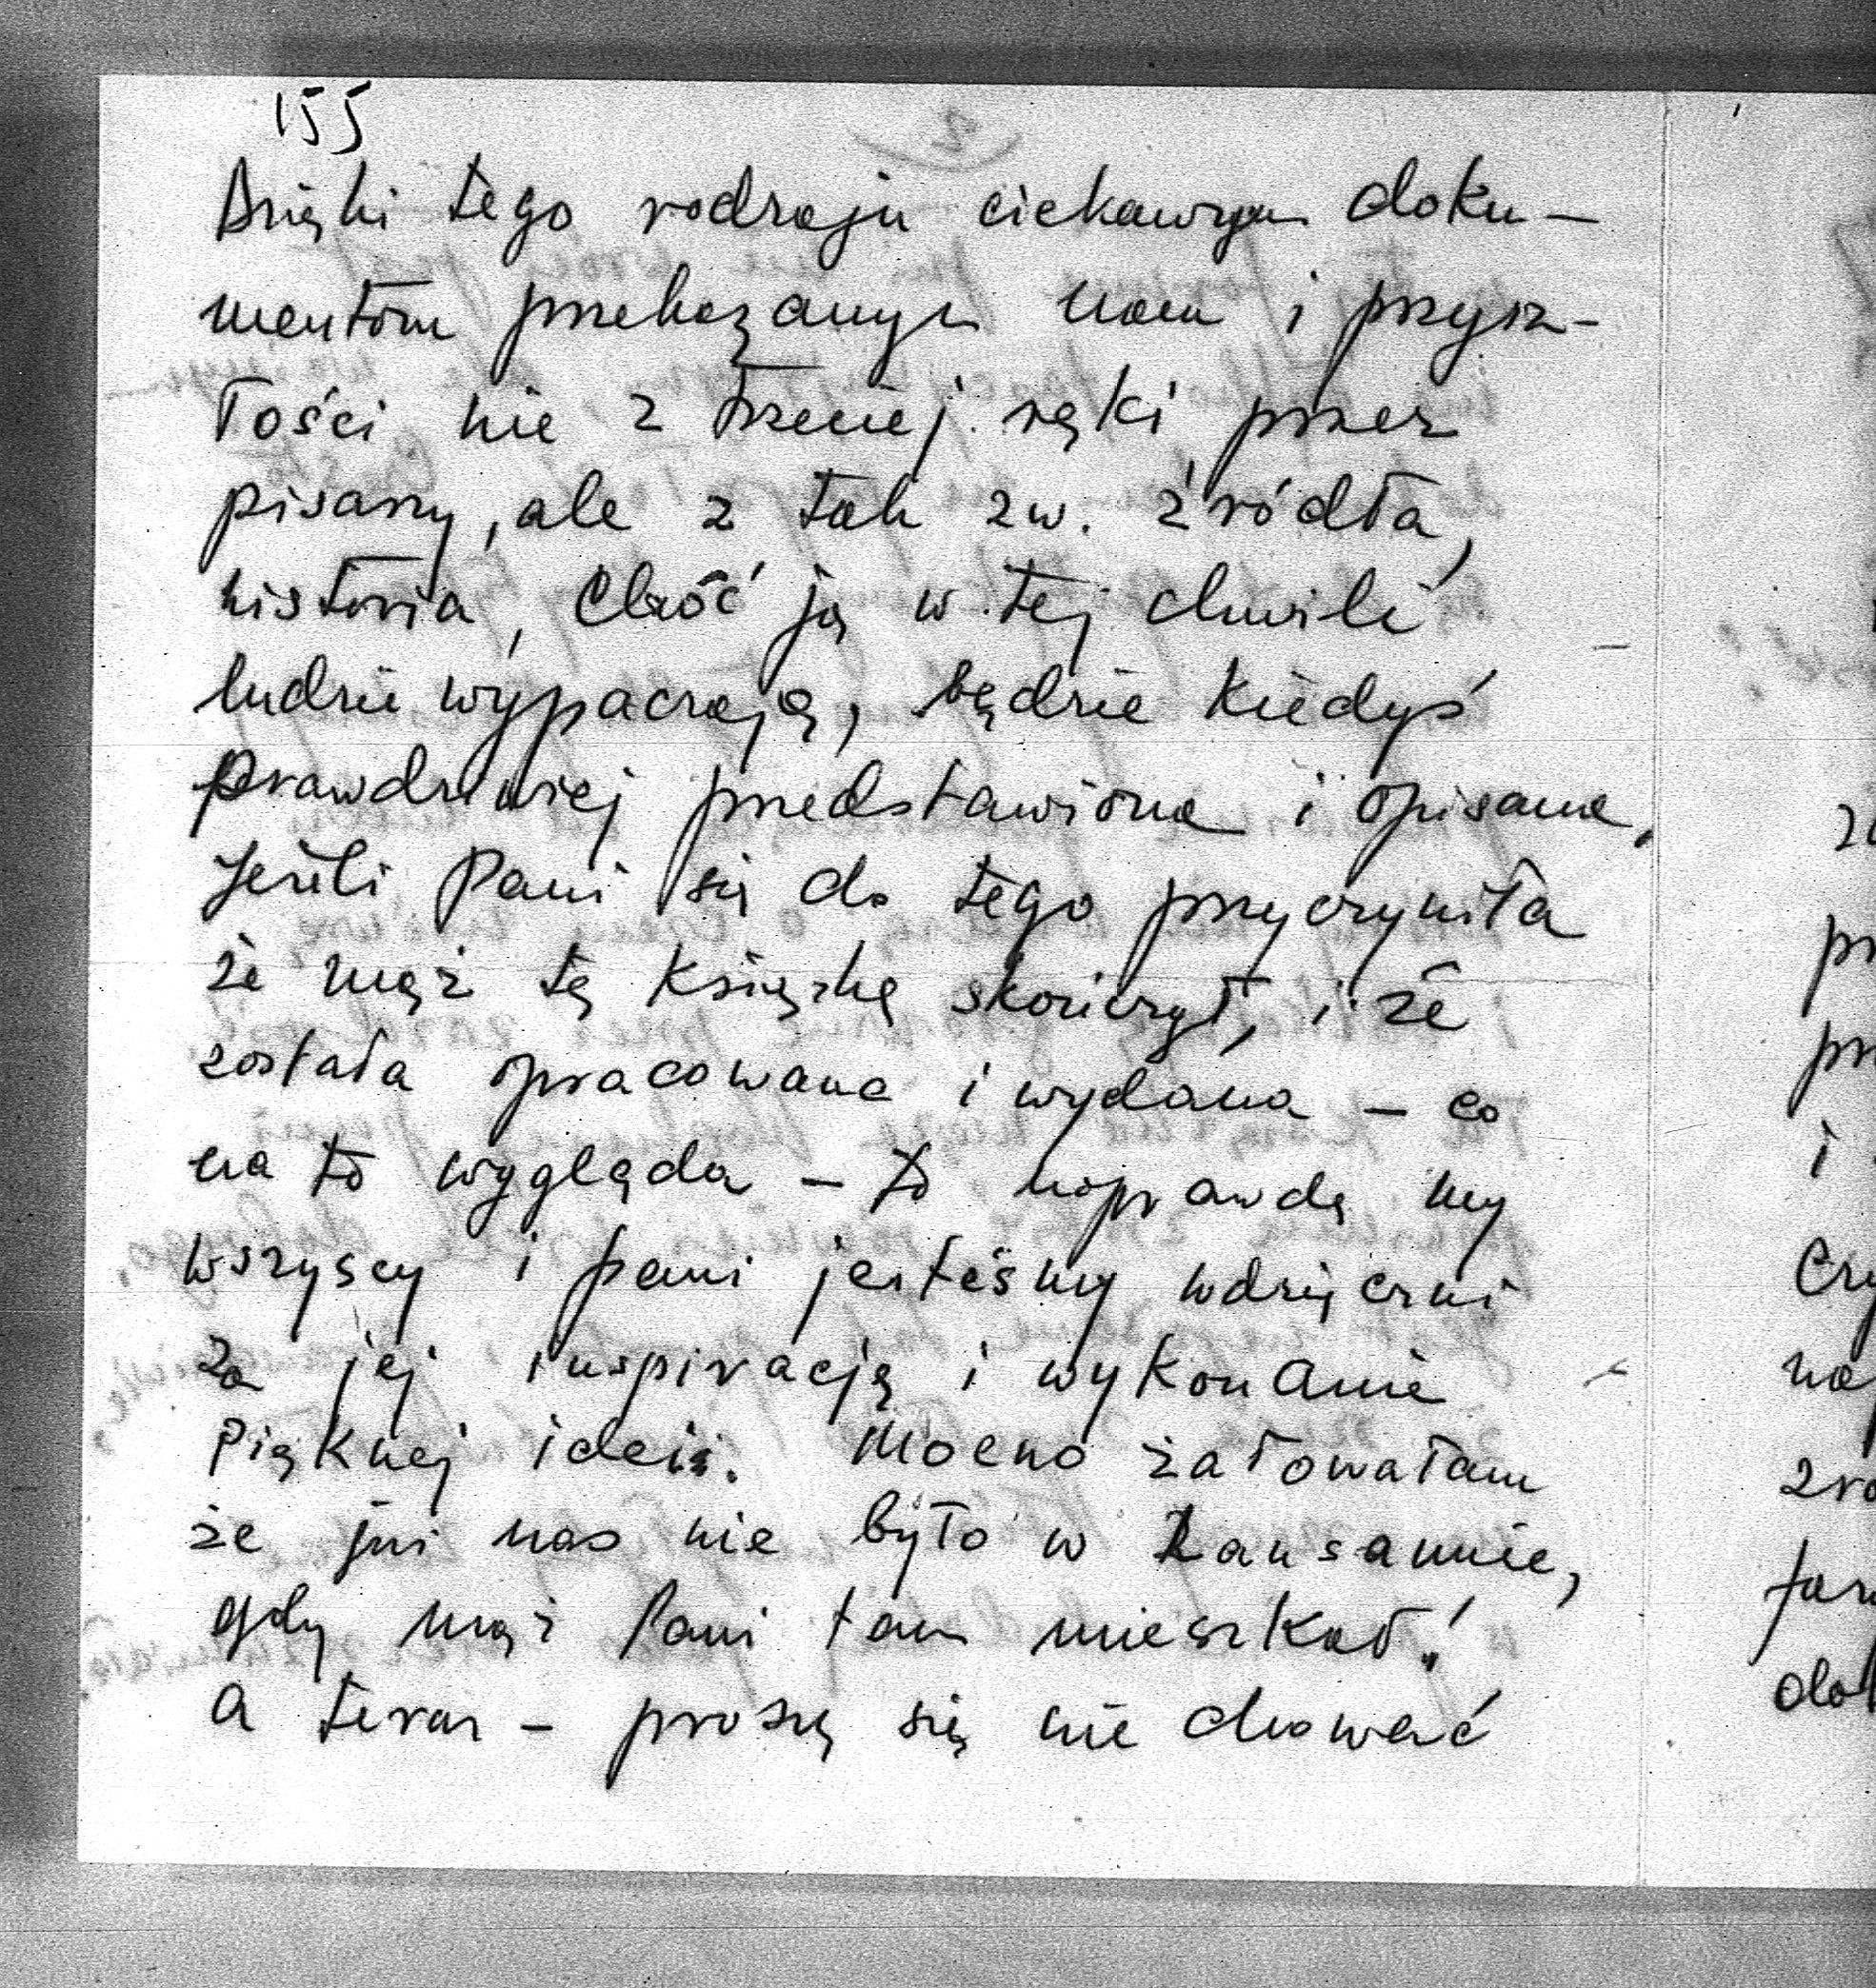 155
Dzięki tego rodzaju ciekawym doku-
mentom przekazanym nam i przysz-
łości nie z trzeciej ręki przez
pisarzy, ale z tak zw. źródła,
historia, choć ją w tej chwili
ludzie wypaczają, będzie kiedyś
prawdziwiej przedstawiona i opisana.
Jeżeli Pani się do tego przyczyniła
że mąż tę książkę skończył, i że
została opracowana i wydana – co
na to wygląda – to naprawdę my
wszyscy i pani jesteśmy wdzięczni
za jej inspirację i wykonanie
pięknej ideii. Mocno żałowałam
że już nas nie było w Lausannie,
gdy mąż Pani tam mieszkał!
A teraz – proszę się nie chować